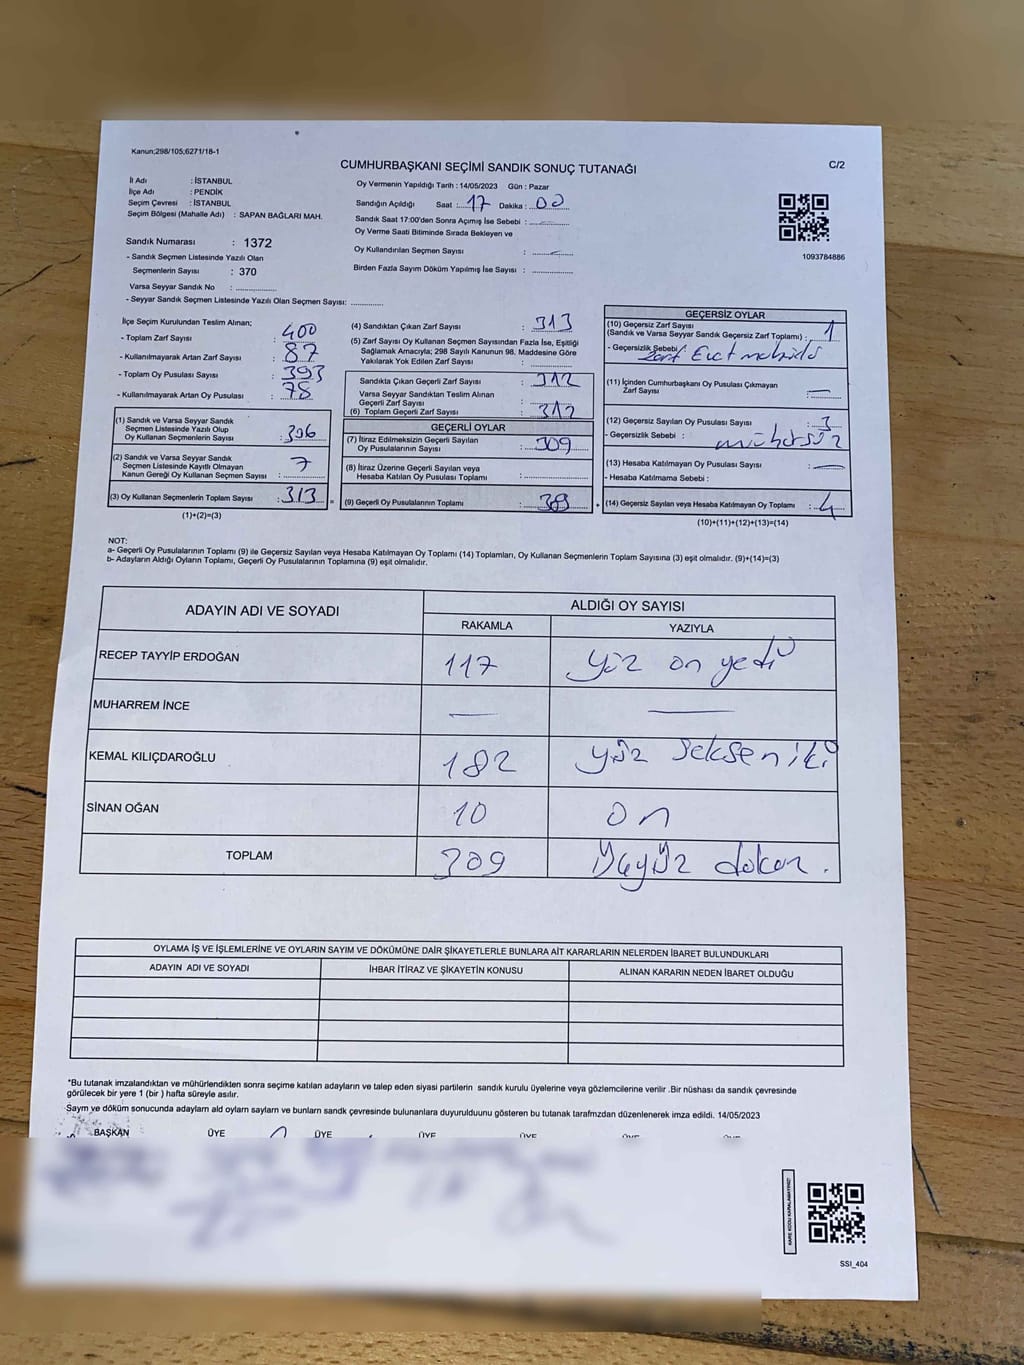 Kanun;298/105;6271/18-1
CUMHURBAŞKANI SEÇİMİ SANDIK SONUÇ TUTANAĞI
C/2
İl Adı : İSTANBUL
İlçe Adı : PENDİK
Seçim Çevresi : İSTANBUL
Seçim Bölgesi (Mahalle Adı) : SAPAN BAĞLARI MAH.
Sandık Numarası : 1372
- Sandık Seçmen Listesinde Yazılı Olan
Seçmenlerin Sayısı : 370
Varsa Seyyar Sandık No : ..............
- Seyyar Sandık Seçmen Listesinde Yazılı Olan Seçmen Sayısı: ...........
Oy Vermenin Yapıldığı Tarih : 14/05/2023 Gün : Pazar
Sandığın Açıldığı Saat : 17 Dakika : 00
Sandık Saat 17:00'den Sonra Açımış İse Sebebi :
Oy Verme Saati Bitiminde Sırada Bekleyen ve
Oy Kullandırılan Seçmen Sayısı :
Birden Fazla Sayım Döküm Yapılmış İse Sayısı : ..............
1093784886
İlçe Seçim Kurulundan Teslim Alınan;
- Toplam Zarf Sayısı : 400
- Kullanılmayarak Artan Zarf Sayısı : 87
- Toplam Oy Pusulası Sayısı : 393
- Kullanılmayarak Artan Oy Pusulası : 78
(1) Sandık ve Varsa Seyyar Sandık
Seçmen Listesinde Yazılı Olup
Oy Kullanan Seçmenlerin Sayısı : 306
(2) Sandık ve Varsa Seyyar Sandık
Seçmen Listesinde Kayıtlı Olmayan
Kanun Gereği Oy Kullanan Seçmen Sayısı : 7
(3) Oy Kullanan Seçmenlerin Toplam Sayısı : 313
(1)+(2)=(3)
(4) Sandıktan Çıkan Zarf Sayısı : 313
(5) Zarf Sayısı Oy Kullanan Seçmen Sayısından Fazla İse, Eşitliği
Sağlamak Amacıyla; 298 Sayılı Kanunun 98. Maddesine Göre
Yakılarak Yok Edilen Zarf Sayısı : ..............
Sandıkta Çıkan Geçerli Zarf Sayısı : 312
Varsa Seyyar Sandıktan Teslim Alınan
Geçerli Zarf Sayısı : ..............
(6) Toplam Geçerli Zarf Sayısı : 312
GEÇERLİ OYLAR
(7) İtiraz Edilmeksizin Geçerli Sayılan
Oy Pusulalarının Sayısı : 309
(8) İtiraz Üzerine Geçerli Sayılan veya
Hesaba Katılan Oy Pusulası Toplamı : ..............
(9) Geçerli Oy Pusulalarının Toplamı : 309
GEÇERSİZ OYLAR
(10) Geçersiz Zarf Sayısı
(Sandık ve Varsa Seyyar Sandık Geçersiz Zarf Toplamı) : 1
- Geçersizlik Sebebi : Zarf
(11) İçinden Cumhurbaşkanı Oy Pusulası Çıkmayan
Zarf Sayısı :
(12) Geçersiz Sayılan Oy Pusulası Sayısı : 3
- Geçersizlik Sebebi : mühürsüz
(13) Hesaba Katılmayan Oy Pusulası Sayısı : —
- Hesaba Katılmama Sebebi :
(14) Geçersiz Sayılan veya Hesaba Katılmayan Oy Toplamı : 4
(10)+(11)+(12)+(13)=(14)
NOT:
a- Geçerli Oy Pusulalarının Toplamı (9) ile Geçersiz Sayılan veya Hesaba Katılmayan Oy Toplamı (14) Toplamları, Oy Kullanan Seçmenlerin Toplam Sayısına (3) eşit olmalıdır. (9)+(14)=(3)
b- Adayların Aldığı Oyların Toplamı, Geçerli Oy Pusulalarının Toplamına (9) eşit olmalıdır.
ADAYIN ADI VE SOYADI ALDIĞI OY SAYISI
RAKAMLA YAZIYLA
RECEP TAYYİP ERDOĞAN 117 yüz on yedi
MUHARREM İNCE — —
KEMAL KILIÇDAROĞLU 182 yüz seksen iki
SİNAN OĞAN 10 on
TOPLAM 309 Üçyüz dokuz.
OYLAMA İŞ VE İŞLEMLERİNE VE OYLARIN SAYIM VE DÖKÜMÜNE DAİR ŞİKAYETLERLE BUNLARA AİT KARARLARIN NELERDEN İBARET BULUNDUKLARI
ADAYIN ADI VE SOYADI İHBAR İTİRAZ VE ŞİKAYETİN KONUSU ALINAN KARARIN NEDEN İBARET OLDUĞU
*Bu tutanak imzalandıktan ve mühürlendikten sonra seçime katılan adayların ve talep eden siyasi partilerin sandık kurulu üyelerine veya gözlemcilerine verilir .Bir nüshası da sandık çevresinde
görülecek bir yere 1 (bir ) hafta süreyle asılır.
Sayım ve döküm sonucunda adayların ald oyların saylarn ve bunlarn sandk çevresinde bulunanlara duyurulduunu gösteren bu tutanak tarafmzdan düzenlenerek imza edildi. 14/05/2023
BAŞKAN ÜYE ÜYE ÜYE ÜYE ÜYE ÜYE
KARE KODU KARALAMAYINIZ!
SSI_404